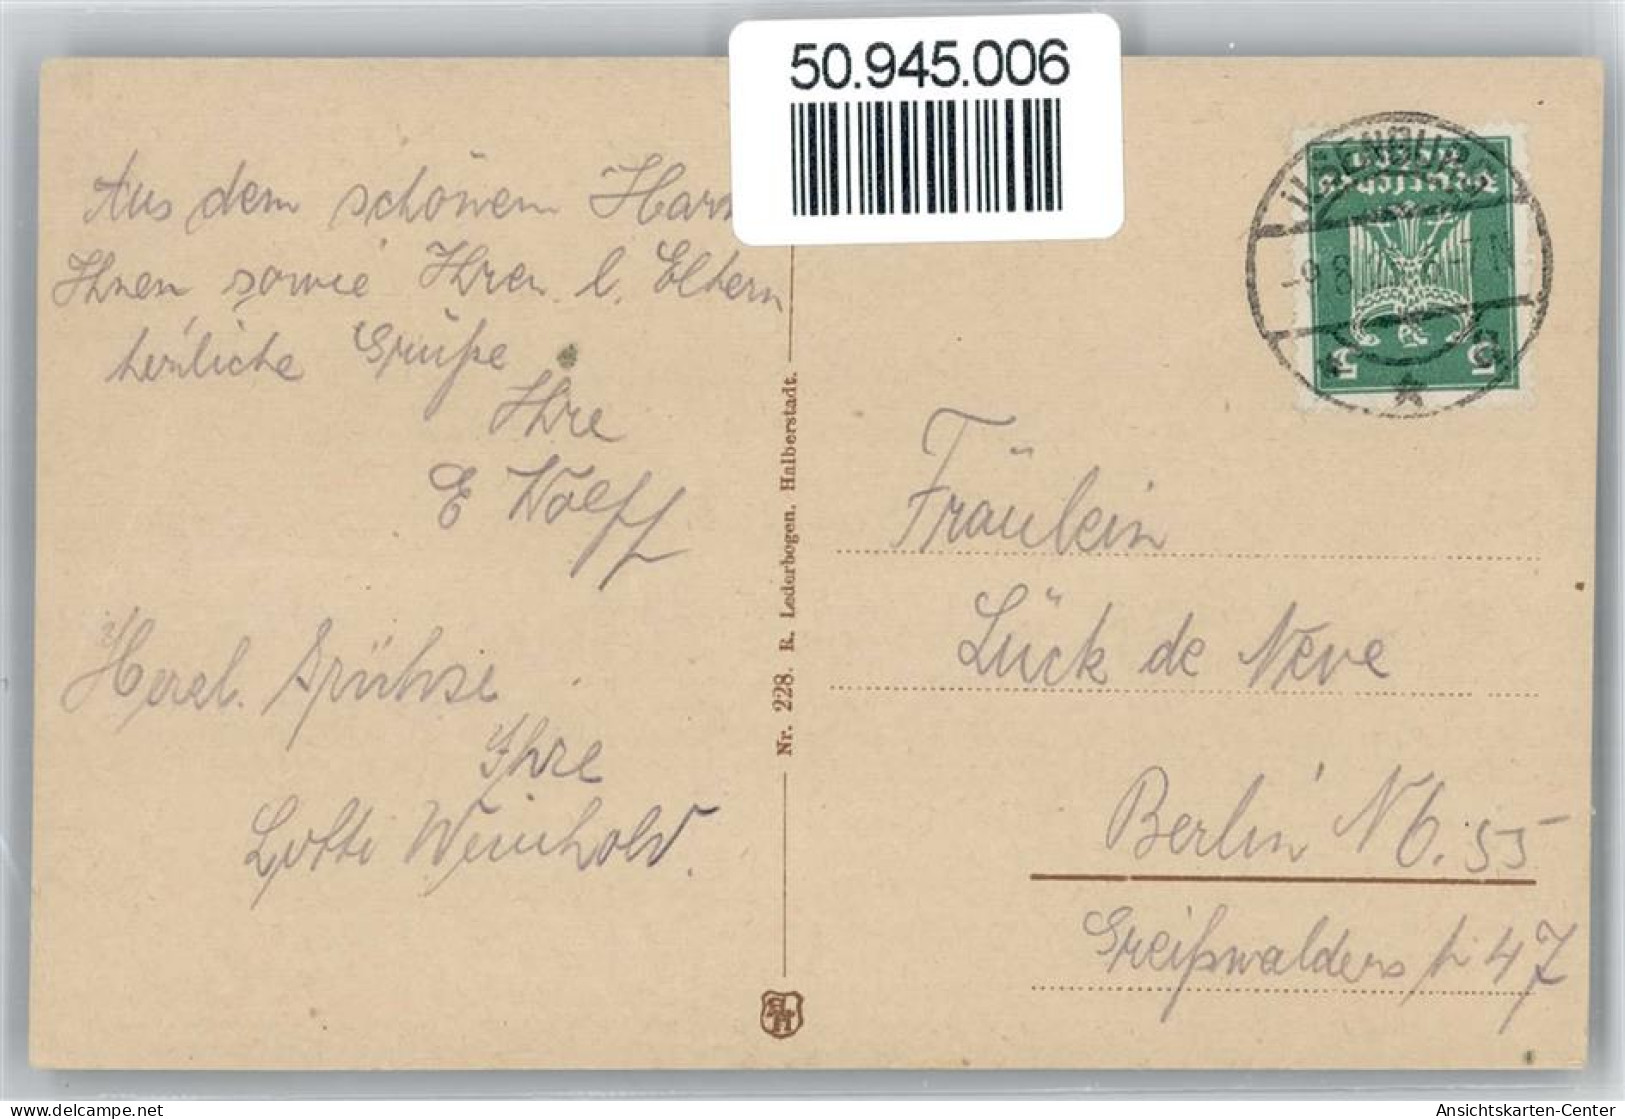 50.945.006
Aus dem schönen Harz
Ihnen sowie Ihren l. Eltern
herzliche Grüße
Ihre
E Wolff
Herzl. Grüße
Ihre
Lotte Weinhold.
Nr. 228. R. Lederbogen, Halberstadt.
ILSENBURG
-9.8 6-7 N
Deutsches Reich
5 5
Fräulein
Lück de Neve
Berlin NO. 55
Greifswalderstr 47
delcampe.net
Ansichtskarten-Center